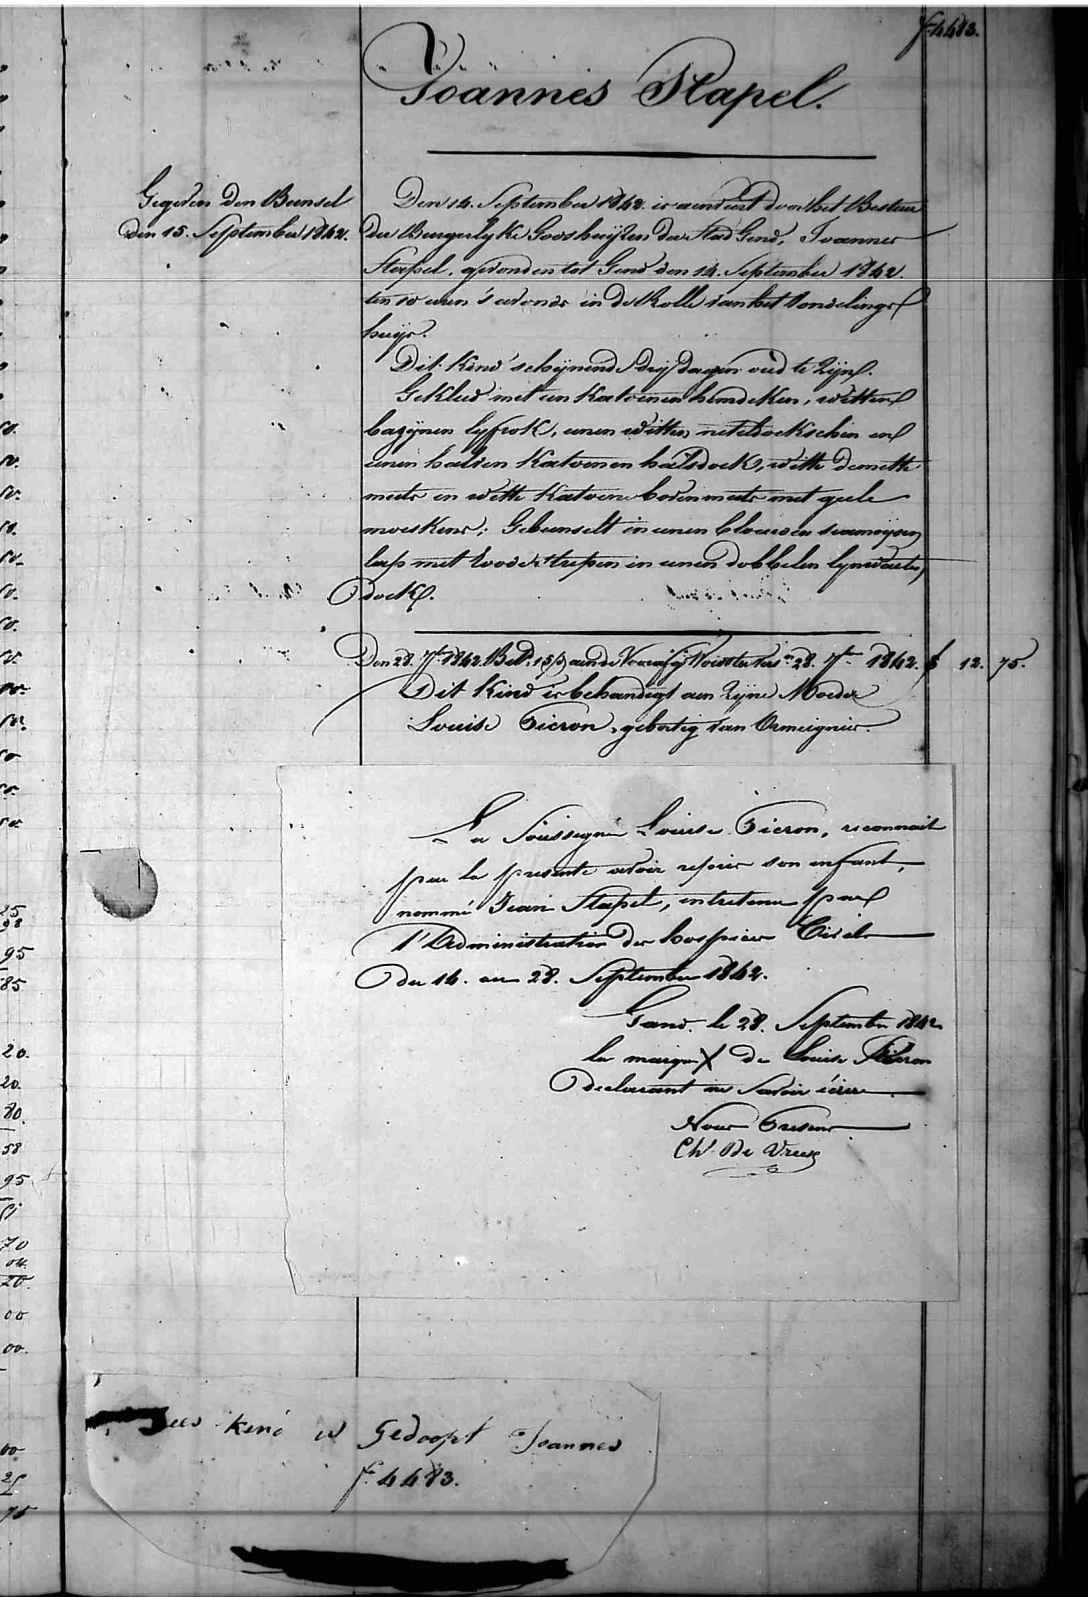 f. 4483.
Joannes Stapel.
Gegeven den Bunsel
den 15. September 1842.
Den 14. September 1842. is aenveert door het Bestuer
der Burgerlyke Godshuijzen der Stad Gend, Joannes
Stapel, gevonden tot Gend den 14. September 1842.
ten 10 uren 's avonds in de Rolle van het Vondelings
huijs.
Dit kind schijnende drij dagen oud te zijn.
Gekleed met een katoenen hemdeken, witten
bazijnen lyfrok, eenen witten neteldoekschen en
eenen halven katoenen halsdoek, witte demette
muts en witte katoene bovenmuts met geele
moeskens; Gebunselt in eenen blauwen siamoysen
lap met roode strepen in eenen dobbelen lynwaeten
doek.
Den 28. 7br 1842. Bet. aen de 28. 7br 1842. f 12. 75.
Dit kind is behandigt aen zijne Moeder
Louise Ficron, gebortig van Ormeignies.
La Soussignée Louise Ficron, reconnait
par la presente avoir repris son enfant,
nommé Jean Stapel, entretenu par
l'Administration des hospices Civils
du 14. au 28. Septembre 1842.
Gand. le 28. Septembre 1842
la marque X de Louise Ficron
declarant ne savoir écrire
Nous Present
Ch. De Vreese
Dees kind is Gedoopt Joannes
f. 4483.
25
98
95
85
20.
20.
80.
58
95
70
04.
20.
00
00.
00
75